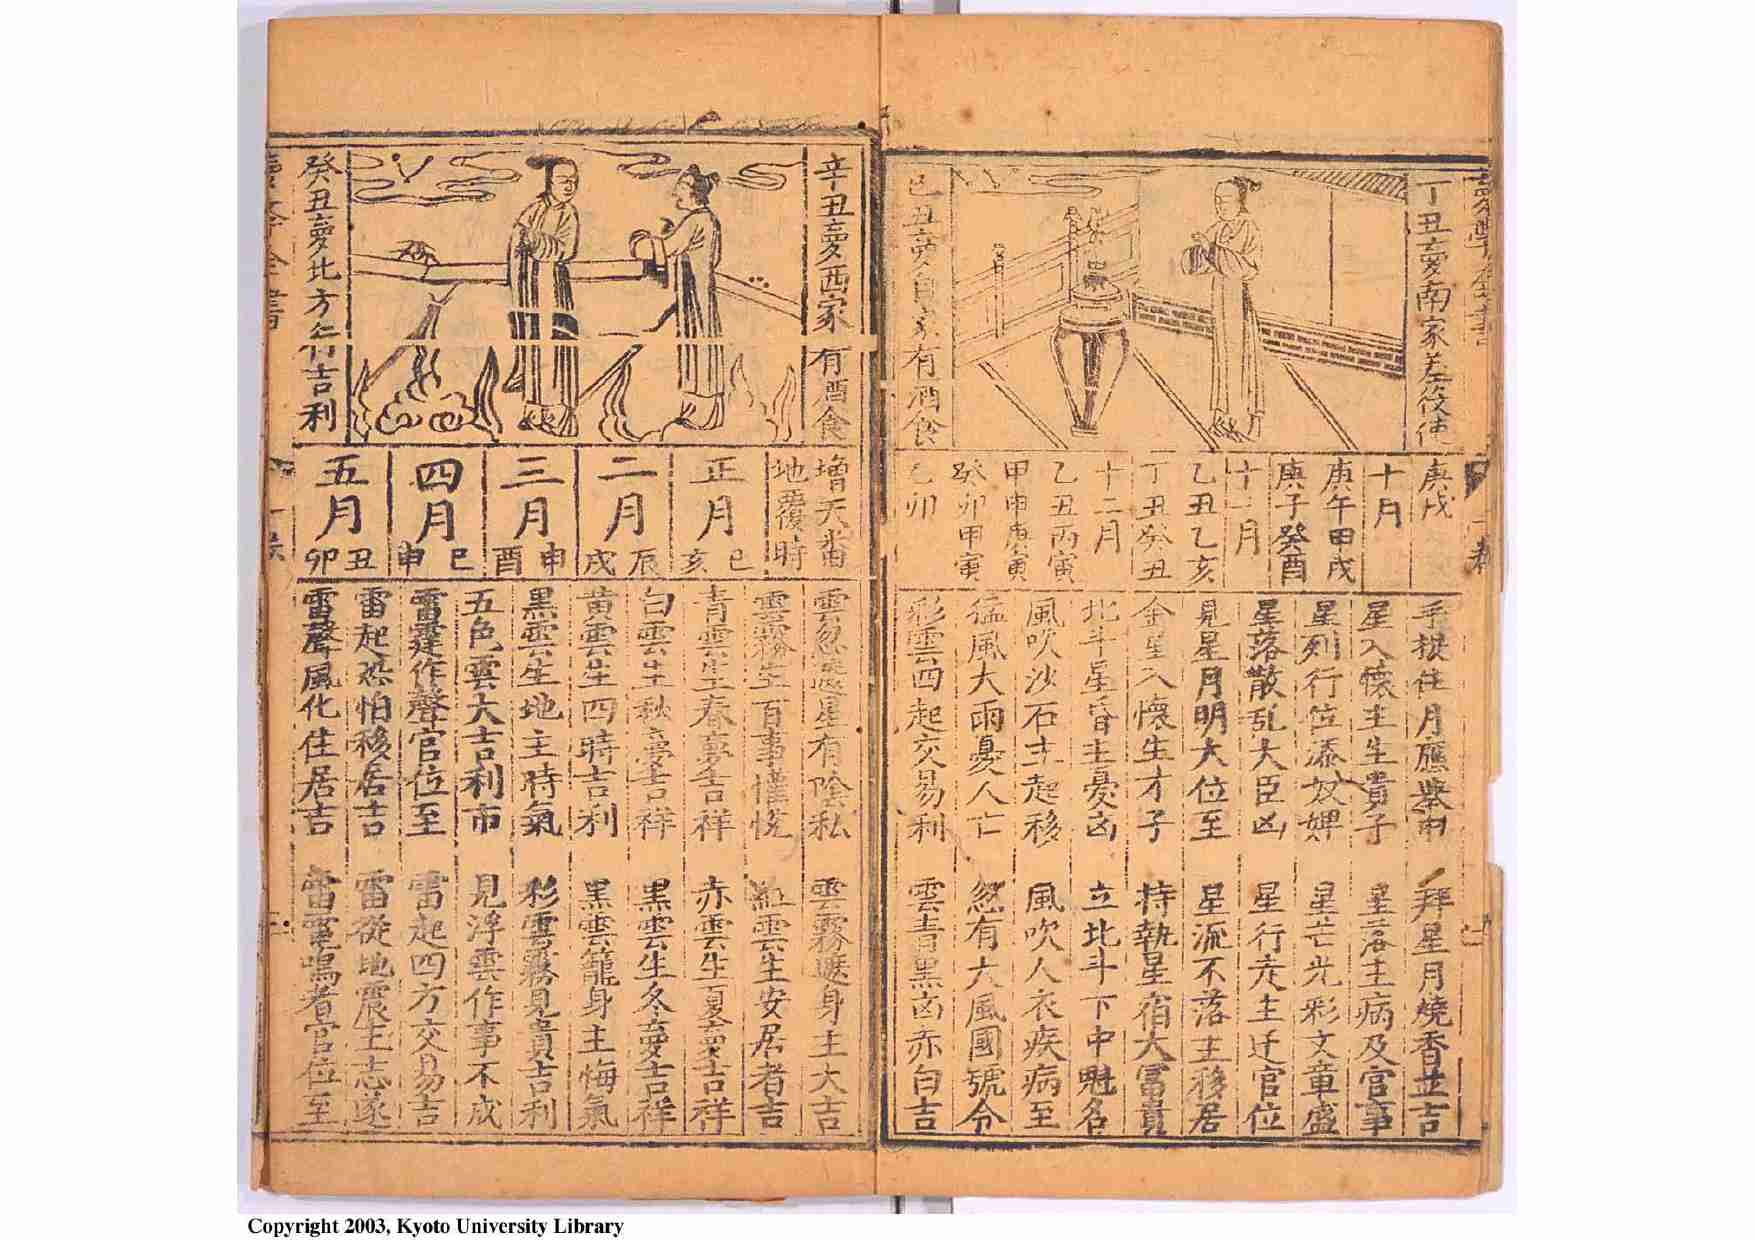 丁丑夢南家差役使
己丑夢自家有酒食
庚戌
十月
庚午甲戌
庚子癸酉
十一月
乙丑乙亥
丁丑癸丑
十二月
乙丑丙寅
甲申庚寅
癸卯甲寅
己卯
手捉住月應舉中
拜星月燒香並吉
星入懷主生貴子
星落主病及官事
星列行位添奴婢
星芒光彩文章盛
星落散乱大臣凶
星行走主迁官位
見星月明大位至
星流不落主移居
金星入懷生才子
持執星宿大冨貴
北斗星昏主憂凶
立北斗下中魁名
風吹沙石主起移
風吹人衣疾病至
猛風大雨憂人亡
忽有大風國號令
彩雲四起交易利
雲青黑凶赤白吉
辛丑夢西家有酒食
癸丑夢北方
吉利
增天番
地覆時
正月
巳
亥
二月
辰
戌
三月
申
酉
四月
巳
申
五月
丑
卯
雲忽遮星有陰私
雲霧遮身主大吉
雲霧生百事懽悅
紅雲生安居者吉
青雲生春夢吉祥
赤雲生夏夢吉祥
白雲生秋夢吉祥
黑雲生冬夢吉祥
黄雲生四時吉利
黑雲籠身主悔氣
黑雲生地主時氣
彩雲霧見貴吉利
五色雲大吉利市
見浮雲作事不成
雷霆作聲官位至
雷起四方交易吉
雷起恐怕移居吉
雷從地震主志遂
雷聲風化住居吉
雷電鳴者官位至
Copyright 2003, Kyoto University Library